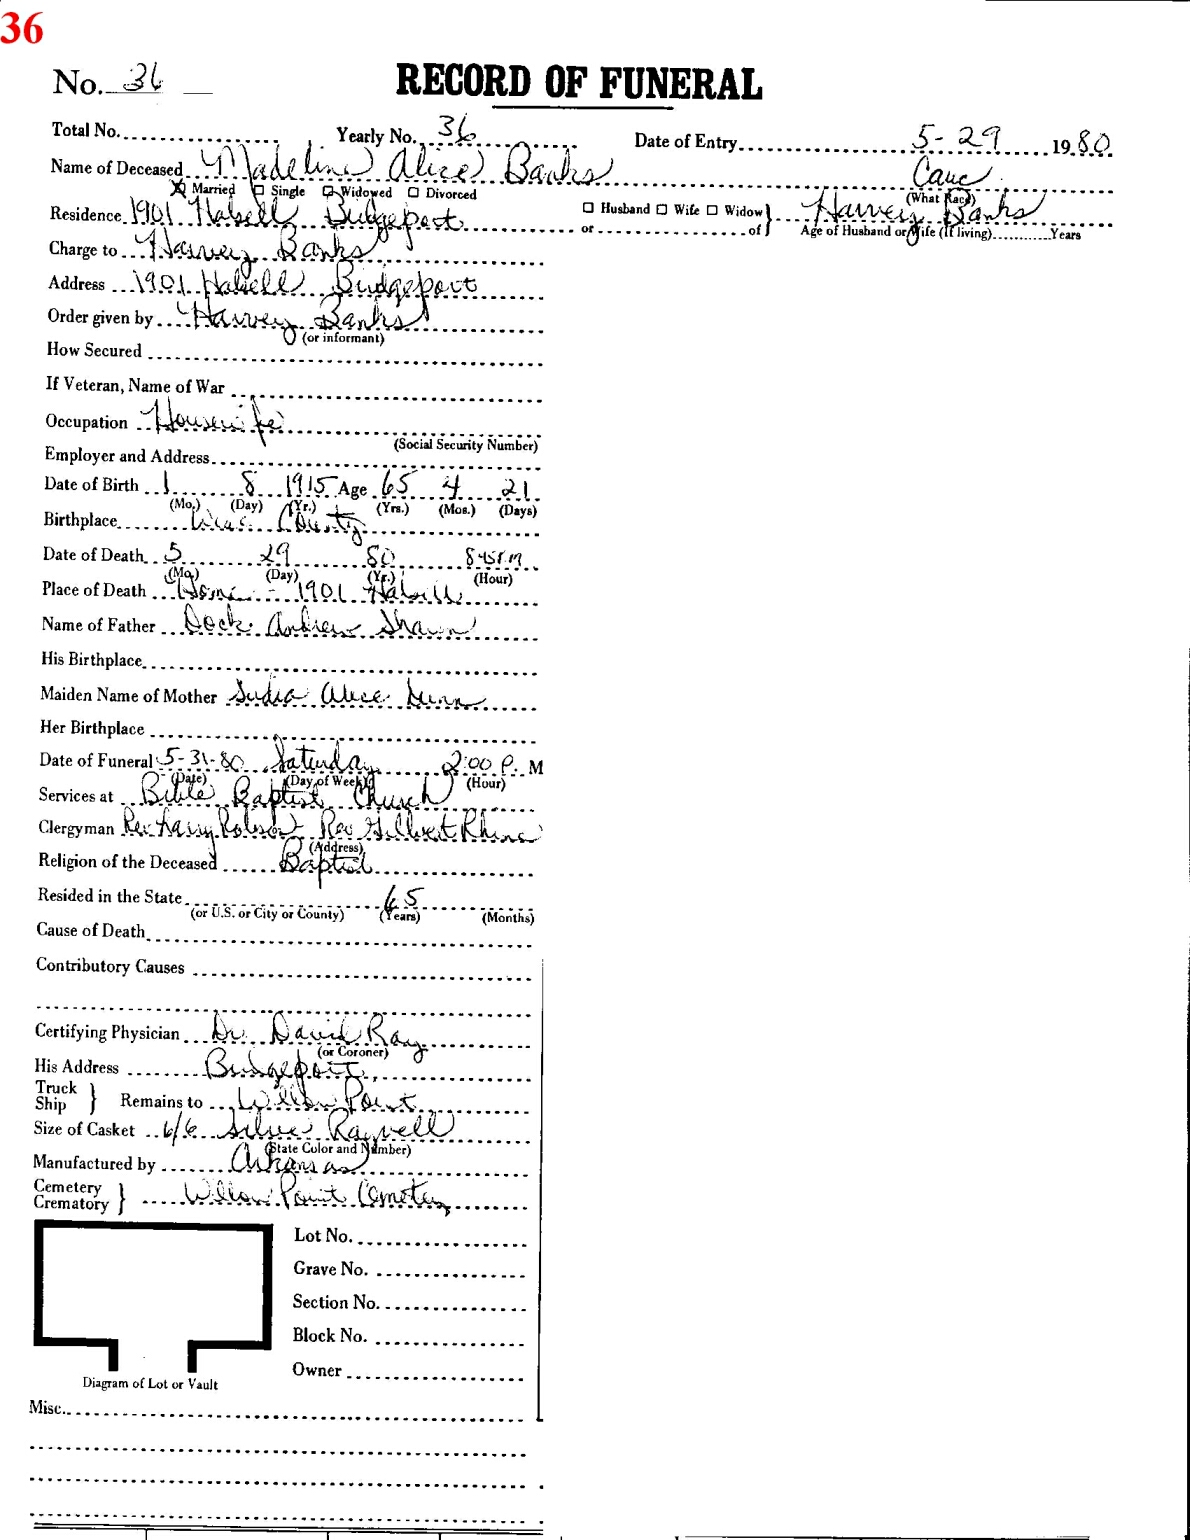 36
No. 36
RECORD OF FUNERAL
Total No. Yearly No. 36 Date of Entry 5-29 1980
Name of Deceased Madeline Alice Banks Cauc
(What Race)
☒ Married ☐ Single ☐ Widowed ☐ Divorced
Residence 1901 Halsell Bridgeport ☐ Husband ☐ Wife ☐ Widow } Harvey Banks
or of } Age of Husband or Wife (If living) Years
Charge to Harvey Banks
Address 1901 Halsell Bridgeport
Order given by Harvey Banks
(or informant)
How Secured
If Veteran, Name of War
Occupation Housewife
(Social Security Number)
Employer and Address
Date of Birth 1 8 1915 Age 65 4 21
(Mo.) (Day) (Yr.) (Yrs.) (Mos.) (Days)
Birthplace Wise County
Date of Death 5 29 80 845PM
(Mo.) (Day) (Yr.) (Hour)
Place of Death Home - 1901 Halsell
Name of Father Dock Andrew Shawn
His Birthplace
Maiden Name of Mother Alice Dunn
Her Birthplace
Date of Funeral 5-31-80 Saturday 2:00 P. M
(Date) (Day of Week) (Hour)
Services at Bible Baptist Church
Clergyman Rev Harry Rev Gilbert Rhine
(Address)
Religion of the Deceased Baptist
Resided in the State 65
(or U.S. or City or County) (Years) (Months)
Cause of Death
Contributory Causes
Certifying Physician Dr. David Ray
(or Coroner)
His Address Bridgeport
Truck
Ship } Remains to Willow Point
Size of Casket 6/6 Silver
(State Color and Number)
Manufactured by Arkansas
Cemetery
Crematory } Willow Point Cemetery
Lot No.
Grave No.
Section No.
Block No.
Owner
Diagram of Lot or Vault
Misc.